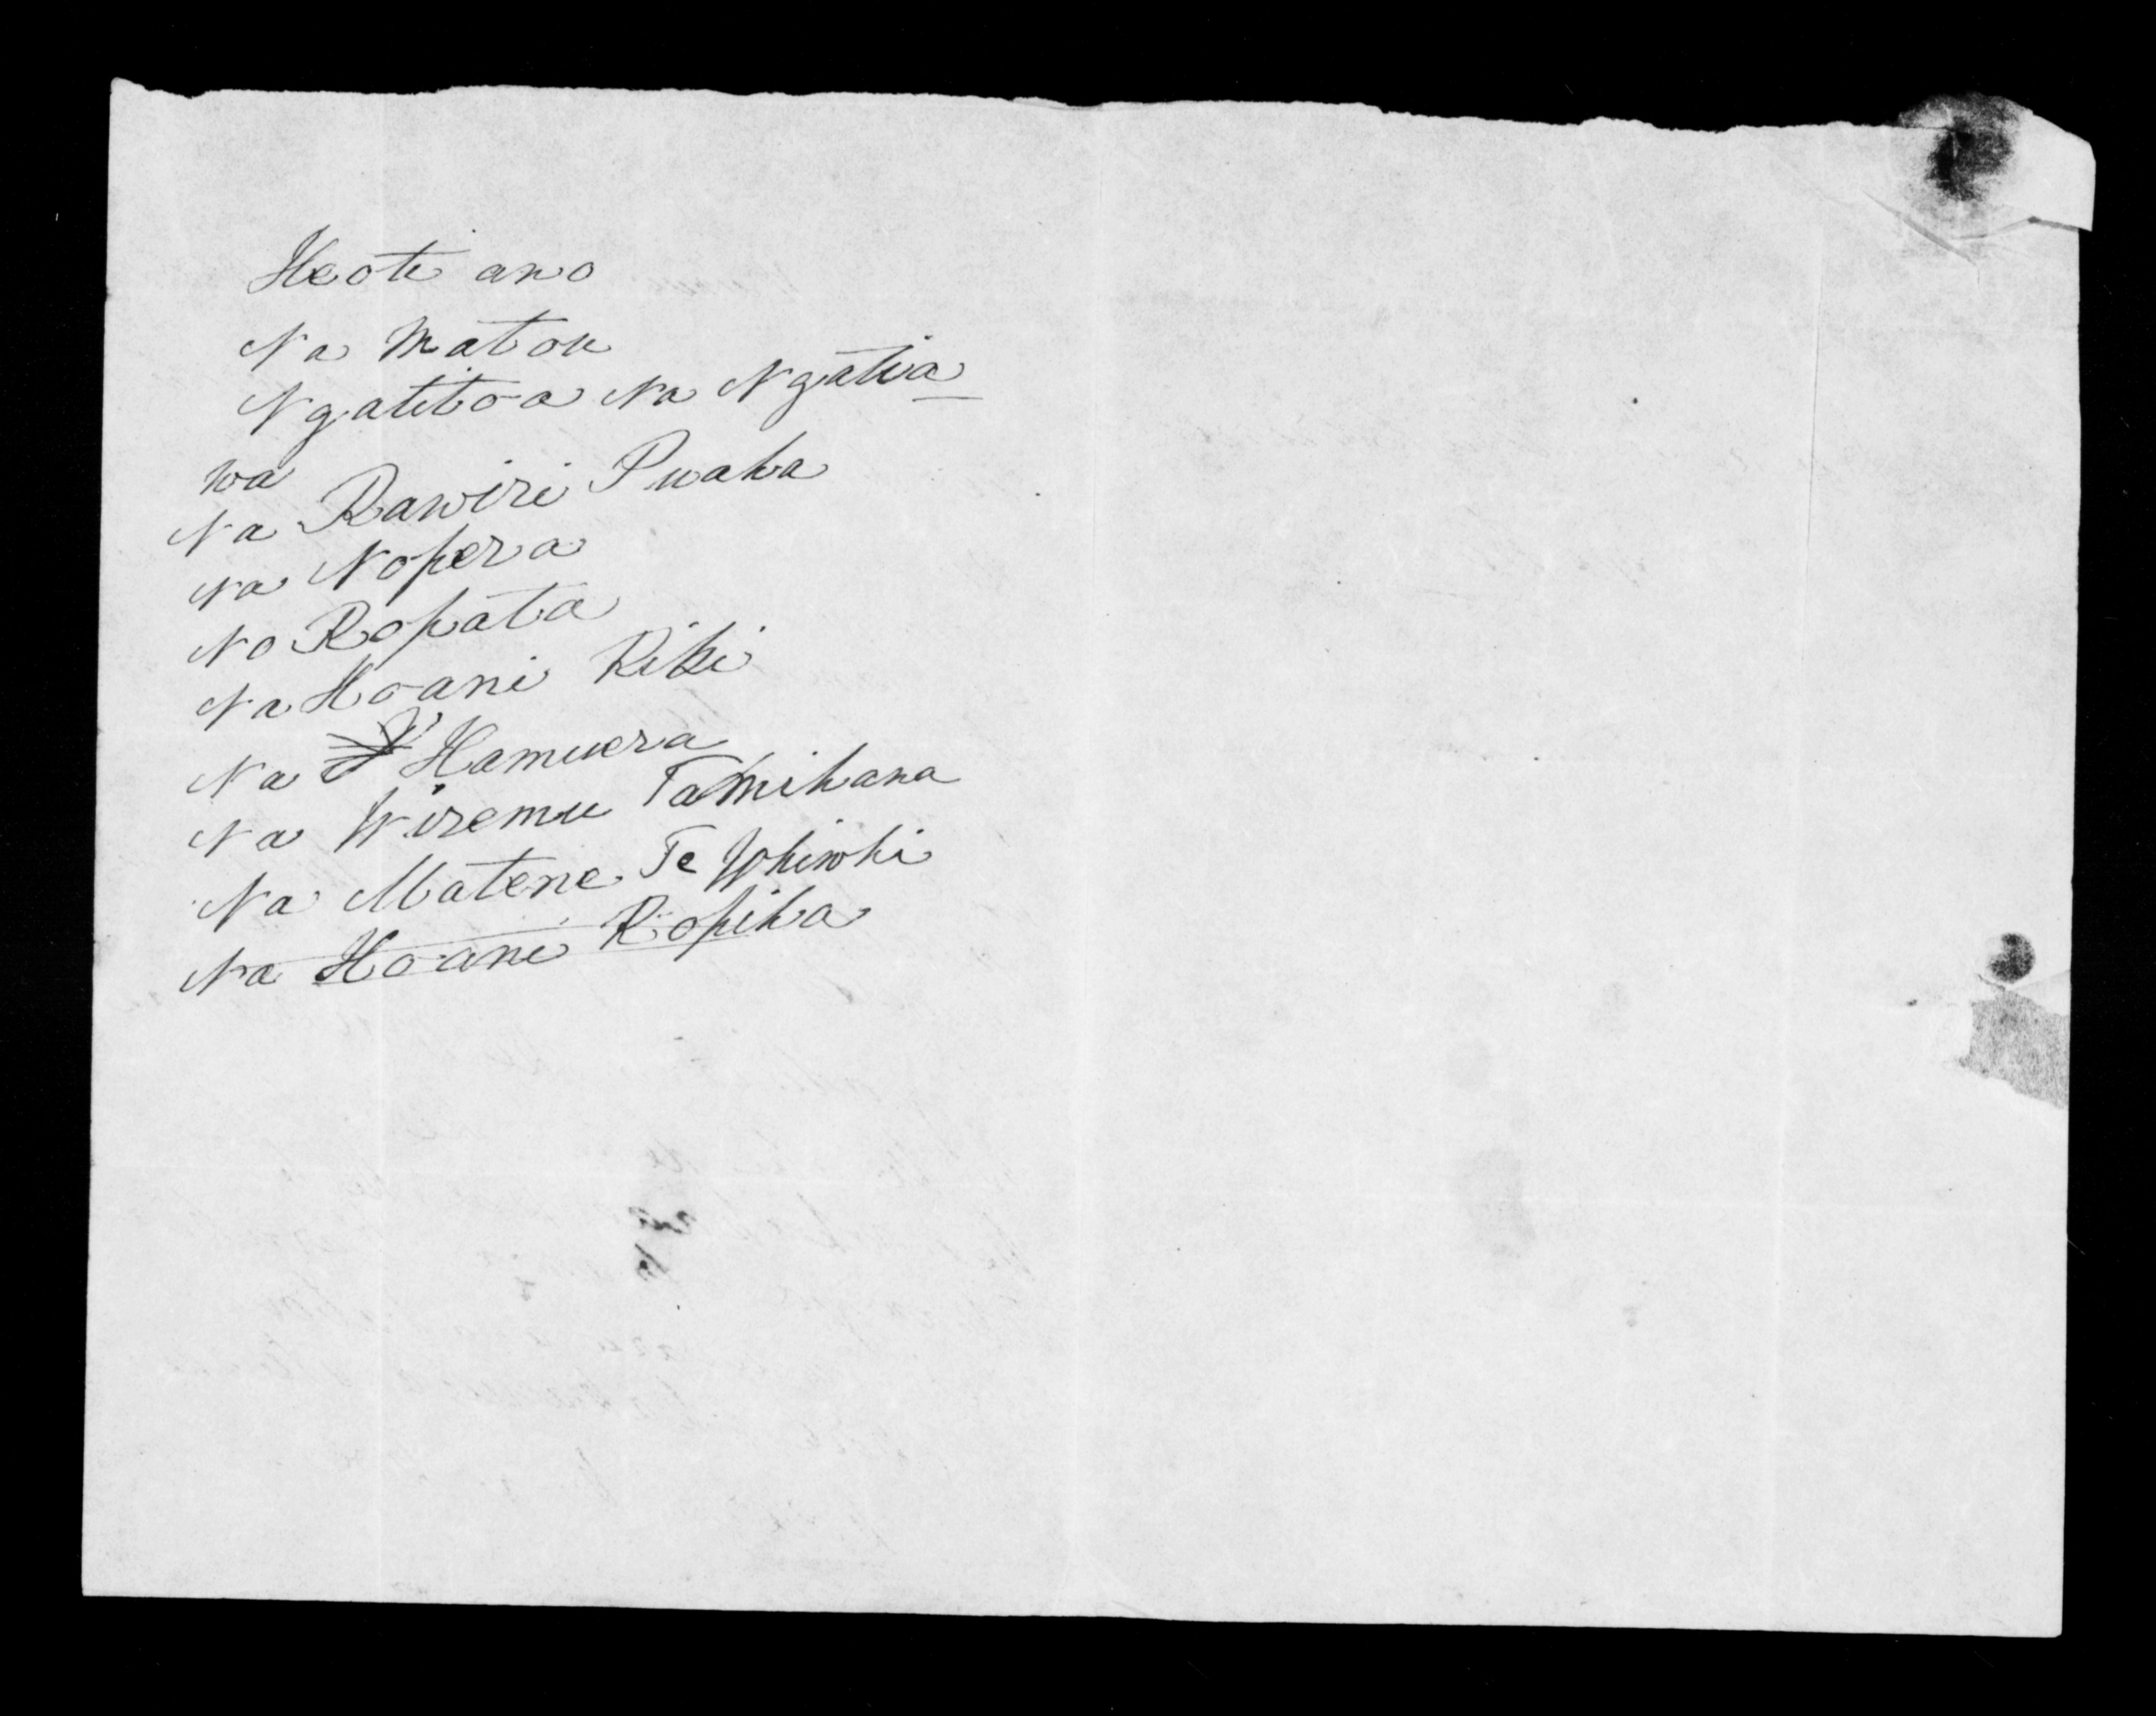 Heoti ano
Na Matou
Ngatitoa Na Ngatia
wa
Na Rawiri Puaha
Na Nopera
Na Ropata
Na Hoani Riki
Na Hamuera
Na Wiremu Tamihana
Na Matene Te Whiwhi
Na Hoani Ropiha